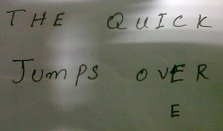 THE QUICK
JUMPS OVER
E